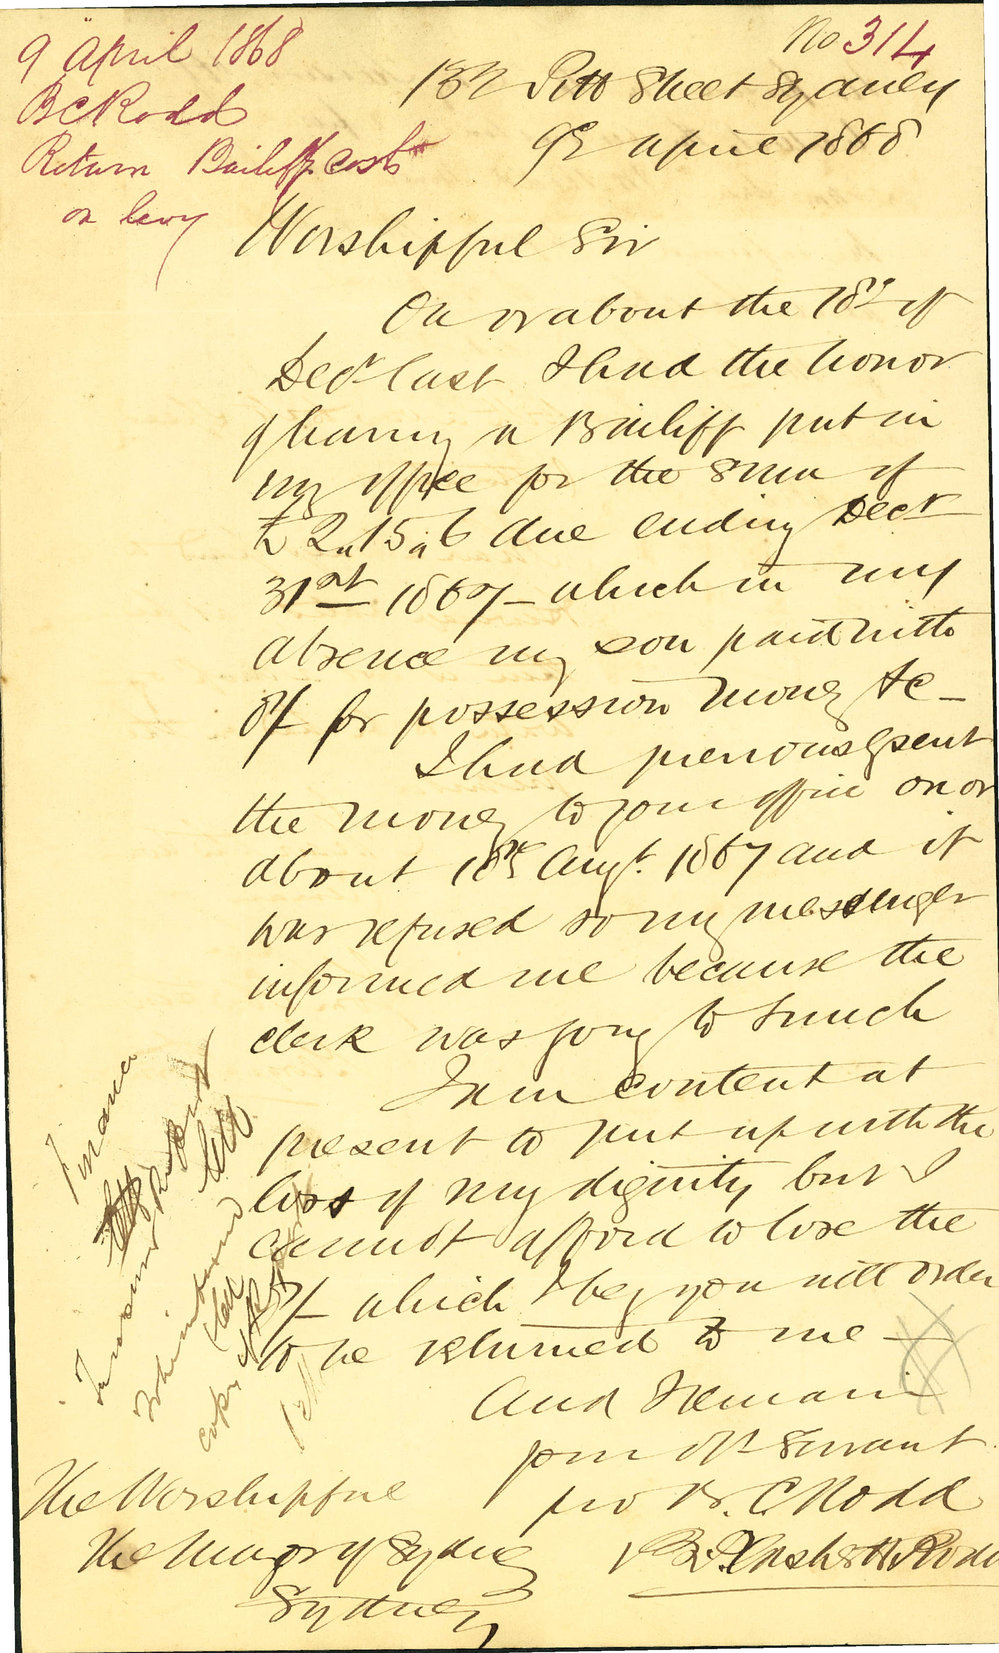 9 April 1868
B C Rodd
Return Bailiffs costs
on levy
No 314
132 Pitt Street Sydney
9th April 1868
Worshipful Sir
On or about the 18th of
Decr last I had the honor
of having a Bailiff put in
my office for the sum of
£2,,15,,6 due ending Decr
31st 1867 – which in my
absence my son paid with
8/- for possession money &c –
I had previously sent
the money to your office on or
about 18th Augt. 1867 and it
was refused so my messenger
informed me because the
clerk was going to lunch
I am content at
present to put up with the
loss of my dignity but I
cannot afford to lose the
8/- which I beg you will order
to be returned to me –
And I remain
your obt Servant
pro B. C. Rodd
The Worshipful
The Mayor of Sydney
Sydney
Finance